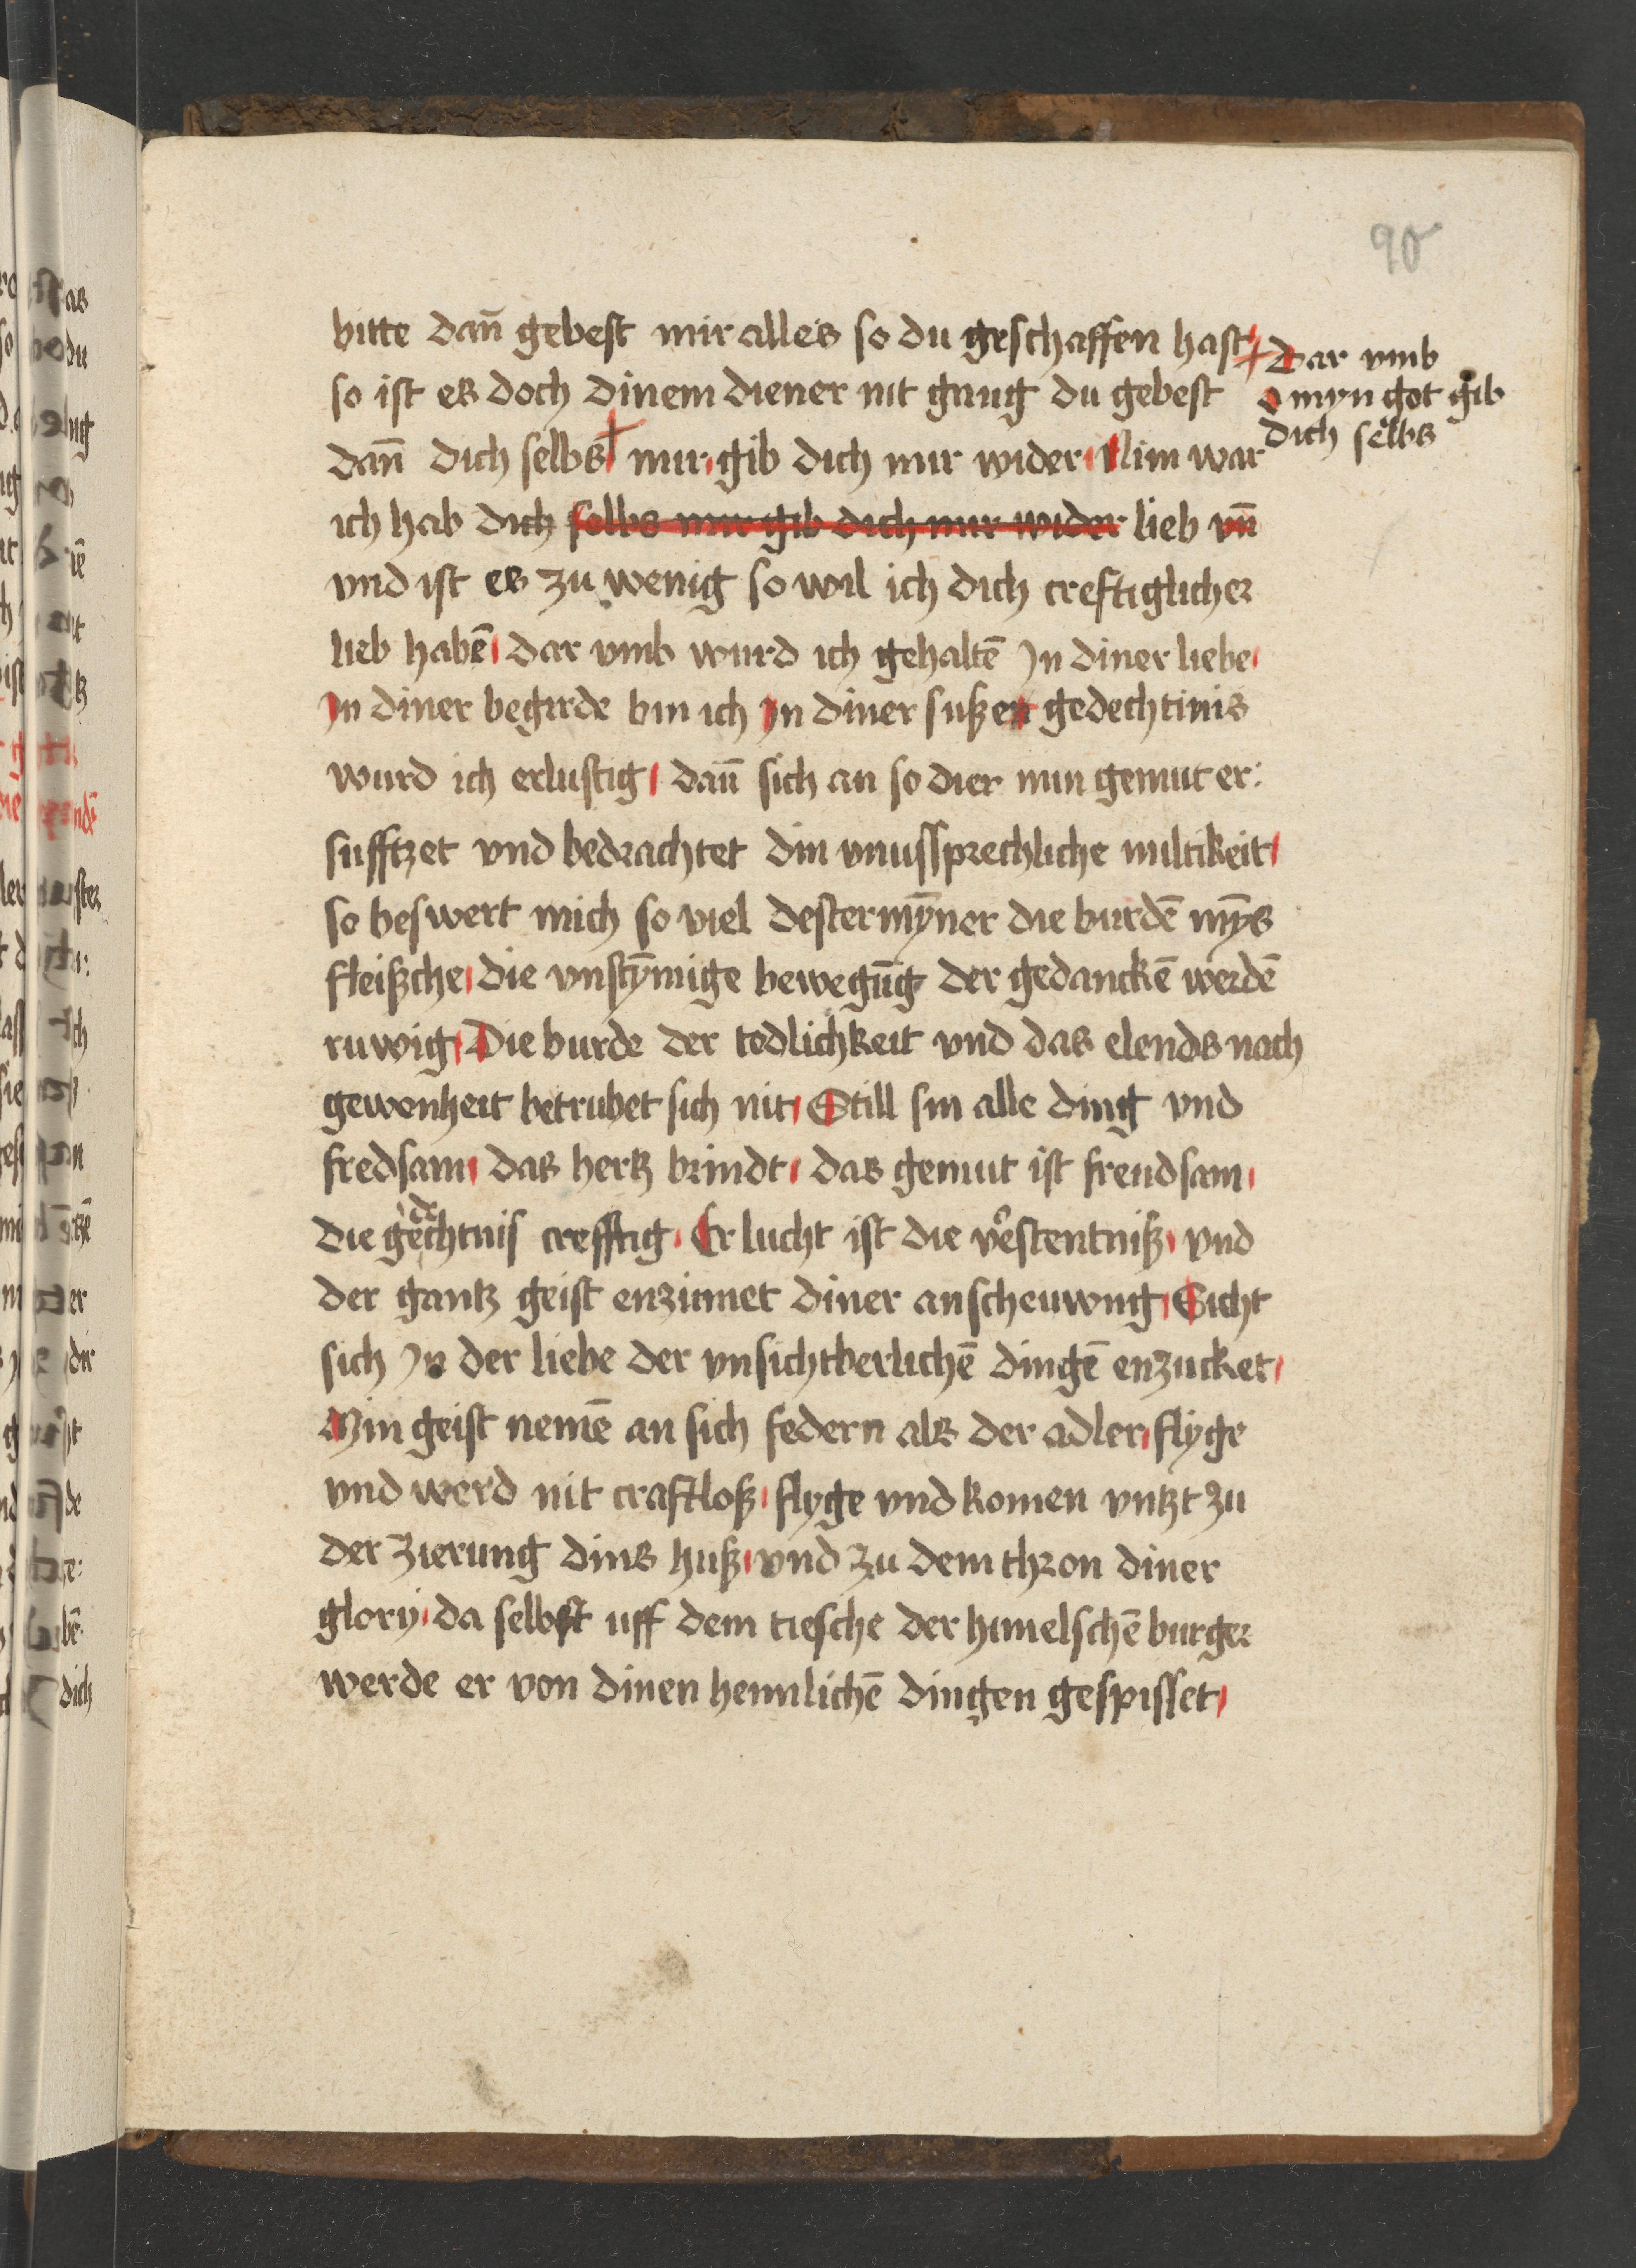 90
bitte dan̄ gebest mir alles so du geschaffen hast
so ist es doch dinem diener nit gnug du gebest
dan̄ dich selbs mir gib dich mir wider Nim war
dar vmb
o myn got gib
dich selbs
ich hab dich selbs mir gib dich mir wider lieb vn̄
vnd ist es zu wenig so wil ich dich creftiglicher
lieb habē dar vmb wurd ich gehaltē Jn diner liebe
Jn diner begirde bin ich Jn diner sußen gedechtinis
wurd ich erlustig dan̄ sich an so dier min gemut er:
sufftzet vnd bedrachtet din vnussprechliche miltikeit
so beswert mich so viel dester mȳner die burdē mȳs
fleißche die vnstȳmige bewegūg der gedanckē werdē
ruwig Die burde der todlichkeit vnd das elends nach
gewonheit betrubet sich nit Still sin alle ding vnd
fredsam das hertz brindt das gemut ist freudsam
die gedechtnis crefftig Er lucht ist die v͛stentniß vnd
der gantz geist enzunnet diner anscheuwung Sicht
sich Jn der liebe der vnsichtberlichē dingē enzucket
Min geist nemē an sich federn als der adler flyge
vnd werd nit craftloß flyge vnd komen vntzt zu
der zierung dins huß vnd zu dem thron diner
glory da selbst uff dem tiesche der himelschē burger
werde er von dinen heimlichē dingen gespisset